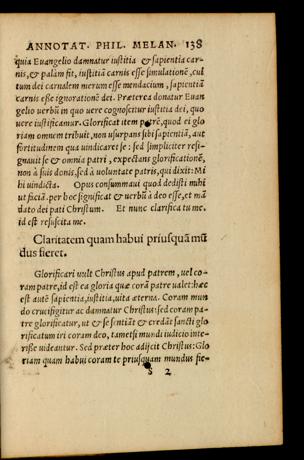 ANNOTAT. PHIL. MELAN. 138
quia Euangelio damnatur iustitia & sapientia car-
nis, & palàm fit, iustitiā carnis esse simulationē, cul
tum dei carnalem merum esse mendacium, sapientiā
carnis esse ignorationē dei. Præterea donatur Euan
gelio uerbū in quo uere cognoscitur iustitia dei, quo
uere iustificamur. Glorificat item patrē, quod ei glo
riam omnem tribuit, non usurpans sibi sapientiā, aut
fortitudinem qua uindicaret se: sed simpliciter resi-
gnauit se & omnia patri, expectans glorificationē,
non à suis donis, sed à uoluntate patris, qui dixit: Mi
hi uindicta. Opus consummaui quod dedisti mihi
ut faciā. per hoc significat & uerbū à deo esse, et mā
dato dei pati Christum. Et nunc clarifica tu me.
id est resuscita me.
Claritatem quam habui priusquā mū
dus fieret.
Glorificari uult Christus apud patrem, uel co-
ram patre, id est ea gloria quæ corā patre ualet: hæc
est autē sapientia, iustitia, uita æterna. Coram mun
do crucifigitur ac damnatur Christus: sed coram pa-
tre glorificatur, ut & se sentiāt & credāt sancti glo
rificatum iri coram deo, tametsi mundi iudicio inte-
rijsse uideantur. Sed præter hoc adijcit Christus: Glo
riam quam habui coram te priusquam mundus fie-
S 2